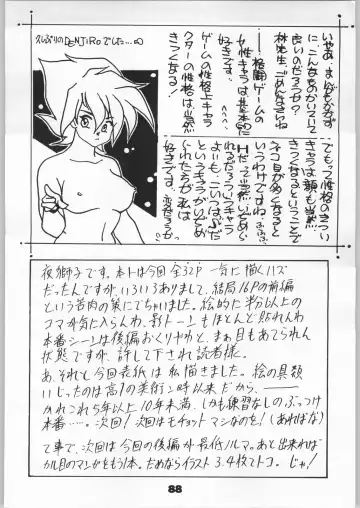 いやあ、まんがもかかずに、こんなものかいていて
良いのだろうか?
林先生、ごめんなさいね
格闘ゲームの
女性キャラは基本的に
好きです。
ゲームの性格上キャラ
クターの性格は当然
きつくなる!
でもって性格のきつい
キャラは顔も当然
きつくなるということで
ネコ目が多くなると
いうわけですね。
という
キャラが
私は
好きです。
DENJIRO でした…
夜獅子です。本トは今回全32P 一気に描くハズ
だったんですが、いろいろありまして、結局16Pの前編
という苦肉の策にでちゃいました。絵的に半分以上の
コマが気に入らんわ、影トーンもほとんど貼れんわ
本番シーンは後編おくりやわと、まぁ目もあてられん
状態ですが、許して下され読者様。
あ、それと今回表紙は私描きました。絵の具類
いじったのは高1の美術ン時以来だから、
かれこれ5年以上10年未満、しかも練習なしのぶっつけ
本番……。次回!次回はモチョットマシなのを!(あればな)
て事で、次回は今回の後編が最低ノルマ。あと出来れば
カル目のマンガをもう1本。だめならイラスト3、4枚てトコ。じゃ!
88